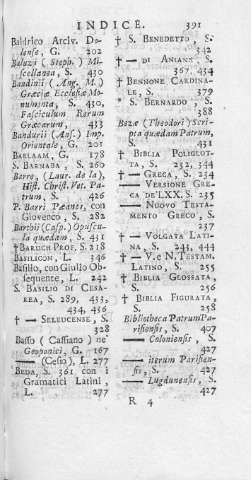 INDICE. 391
Basilrico Arciv. De-
lonso, G. 202
Baluzi ( Steph. ) Mi-
scellanea, S. 430
Bandinii ( Ang. M. )
Græciæ Ecclesiæ Mo-
numenta, S. 430,
Fasciculum Rerum
Græcarum, 433
Bandurii (Ans.) Imp.
Orientale, G. 201
BARLAAM, G. 178
S. BARNABA, S. 260
Barro, (Laur. de la),
Hist. Christ. Vet. Pa-
trum, S. 426
P. Barri Pæaner, con
Giovenco, S. 282
Barthii (Casp.) Opuscu-
la quædam, S. 431
† BARUCH PROF, S. 218
BASILICON, L. 346
Basilio, con Giulio Ob-
sequente, L. 242
S. BASILIO DI CESA-
REA, S. 289, 433,
434, 436
† — SELEUCENSE, S.
328
Basso ( Cassiano ) ne'
Geoponici, G. 167
— (Cesio), L. 277
BEDA, S. 361 con i
Gramatici Latini,
L. 277
† S. BENEDETTO, S.
342
† — DI ANIANE, S.
367. 434
† BENNONE CARDINA-
LE, S. 379
* S. BERNARDO, S.
388
Bezæ (Theodori) Scri-
pta quædam Patrum,
S. 431
† BIBLIA POLIGLOT-
TA, S. 232, 344
† — GRECA, S. 234
— VERSIONE GRE-
CA de'LXX. S. 235
— NUOVO TESTA-
MENTO GRECO, S.
237
† — VOLGATA LATI-
NA, S. 243, 444
† — V. e N. TESTAM.
LATINO, S. 255
† BIBLIA GLOSSATA,
S. 256
† BIBLIA FIGURATA,
S. 258
Bibliotheca Patrum Pa-
risiensis, S. 407
— Coloniensis, S.
427
— iterum Parisien-
sis, S. 427
— Lugdunensis, S.
427
R 4